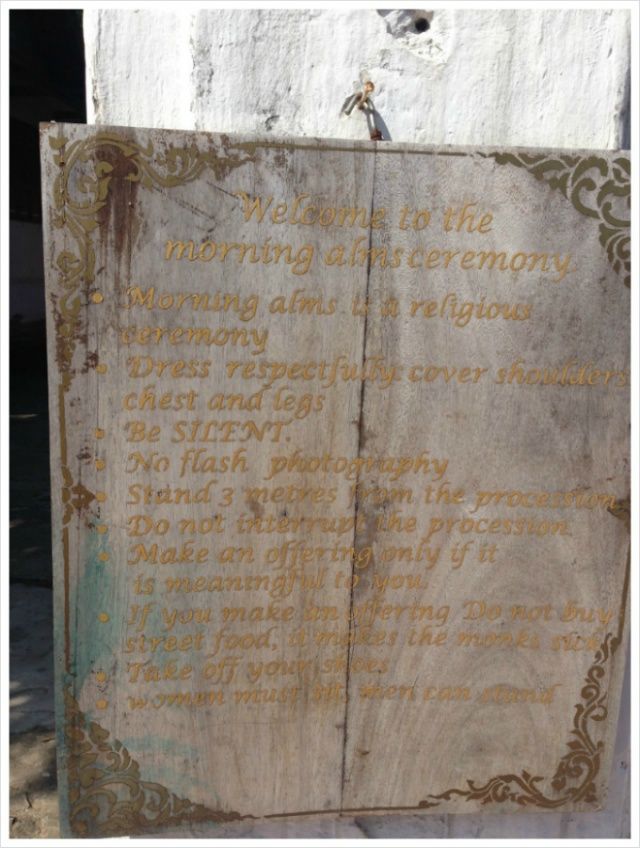 Welcome to the
morning alms ceremony
• Morning alms is a religious
ceremony
• Dress respectfully: cover shoulders
chest and legs
• Be SILENT.
• No flash photography
• Stand 3 metres from the procession
• Do not interrupt the procession.
• Make an offering only if it
is meaningful to you.
• If you make an offering Do not buy
street food, it makes the monks sick
• Take off your shoes
• women must sit, men can stand